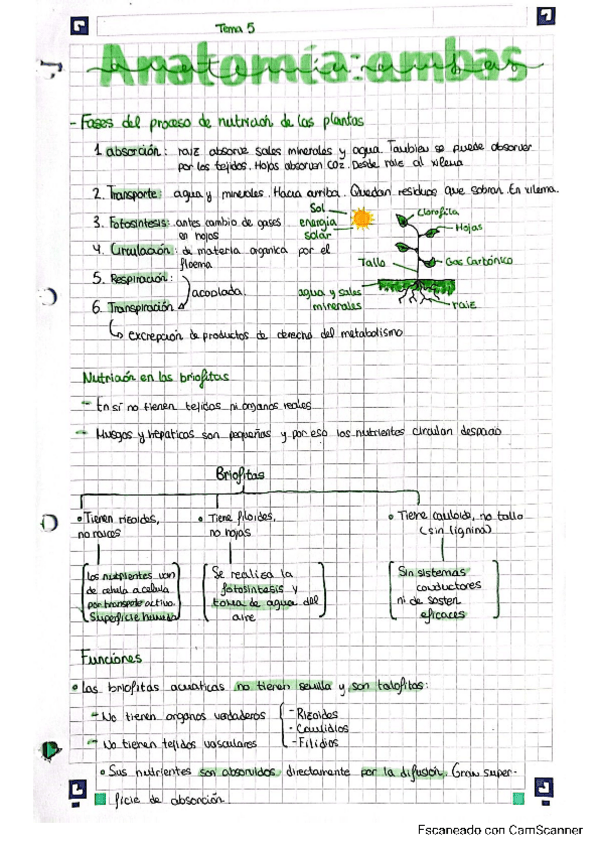 Tema 5
Anatomía: ambas
- Fases del proceso de nutrición de las plantas
1. absorción: raiz absorve sales minerales y agua. Tambien se puede absorver
por los tejidos. Hojas absorven CO2. Desde raiz al xilema.
2. Transporte: agua y minerales. Hacia arriba. Quedan residuos que sobran. En xilema.
3. Fotosíntesis: antes cambio de gases
en hojas
4. Circulación: de materia organica por el
floema
5. Respiración:
6. Transpiración
acoplada.
↳ excrepación de productos de derecho del metabolismo
Sol
energía
solar
Clorofila
Hojas
Tallo
Gas Carbónico
agua y sales
minerales
raiz
Nutrición en las briofitas
- En sí no tienen tejidos ni organos reales
- Musgos y hepaticas son pequeñas y por eso los nutrientes circulan despacio
Briofitas
• Tienen rizoides,
no raices
• Tiene filoides,
no hojas
• Tiene cauloide, no tallo
(sin lignina)
Los nutrientes van
de celula a celula
por transporte activo.
Superficie humeda
Se realiza la
fotosintesis y
toma de agua del
aire
Sin sistemas
conductores
ni de sosten
eficaces
Funciones
• Las briofitas acuaticas no tienen semilla y son talofitas:
- No tienen organos verdaderos
- Rizoides
- Caulidios
- Filidios
- No tienen tejidos vasculares
• Sus nutrientes son absorvidos directamente por la difusión. Gran super-
ficie de absorción.
Escaneado con CamScanner